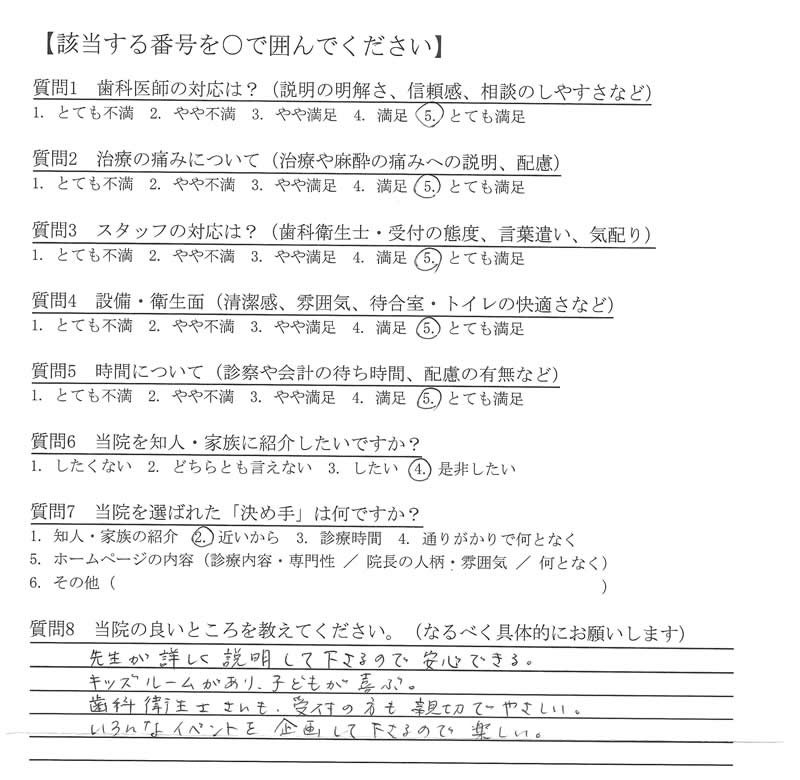 【該当する番号を○で囲んでください】
質問1 歯科医師の対応は？（説明の明解さ、信頼感、相談のしやすさなど）
1. とても不満 2. やや不満 3. やや満足 4. 満足 5. とても満足
質問2 治療の痛みについて（治療や麻酔の痛みへの説明、配慮）
1. とても不満 2. やや不満 3. やや満足 4. 満足 5. とても満足
質問3 スタッフの対応は？（歯科衛生士・受付の態度、言葉遣い、気配り）
1. とても不満 2. やや不満 3. やや満足 4. 満足 5. とても満足
質問4 設備・衛生面（清潔感、雰囲気、待合室・トイレの快適さなど）
1. とても不満 2. やや不満 3. やや満足 4. 満足 5. とても満足
質問5 時間について（診察や会計の待ち時間、配慮の有無など）
1. とても不満 2. やや不満 3. やや満足 4. 満足 5. とても満足
質問6 当院を知人・家族に紹介したいですか？
1. したくない 2. どちらとも言えない 3. したい 4. 是非したい
質問7 当院を選ばれた「決め手」は何ですか？
1. 知人・家族の紹介 2. 近いから 3. 診療時間 4. 通りがかりで何となく
5. ホームページの内容（診療内容・専門性 ／ 院長の人柄・雰囲気 ／ 何となく）
6. その他（ ）
質問8 当院の良いところを教えてください。（なるべく具体的にお願いします）
先生が詳しく説明して下さるので安心できる。
キッズルームがあり、子どもが喜ぶ。
歯科衛生士さんも、受付の方も親切でやさしい。
いろんなイベントを企画して下さるので楽しい。